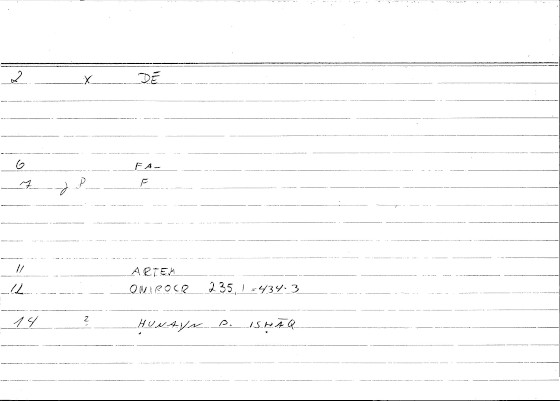 2 x DĒ
6 FA-
7 y P F
11 ARTEM
12 ONIROCR 235,1 = 434.3
14 ? ḤUNAYN B. ISḤĀQ